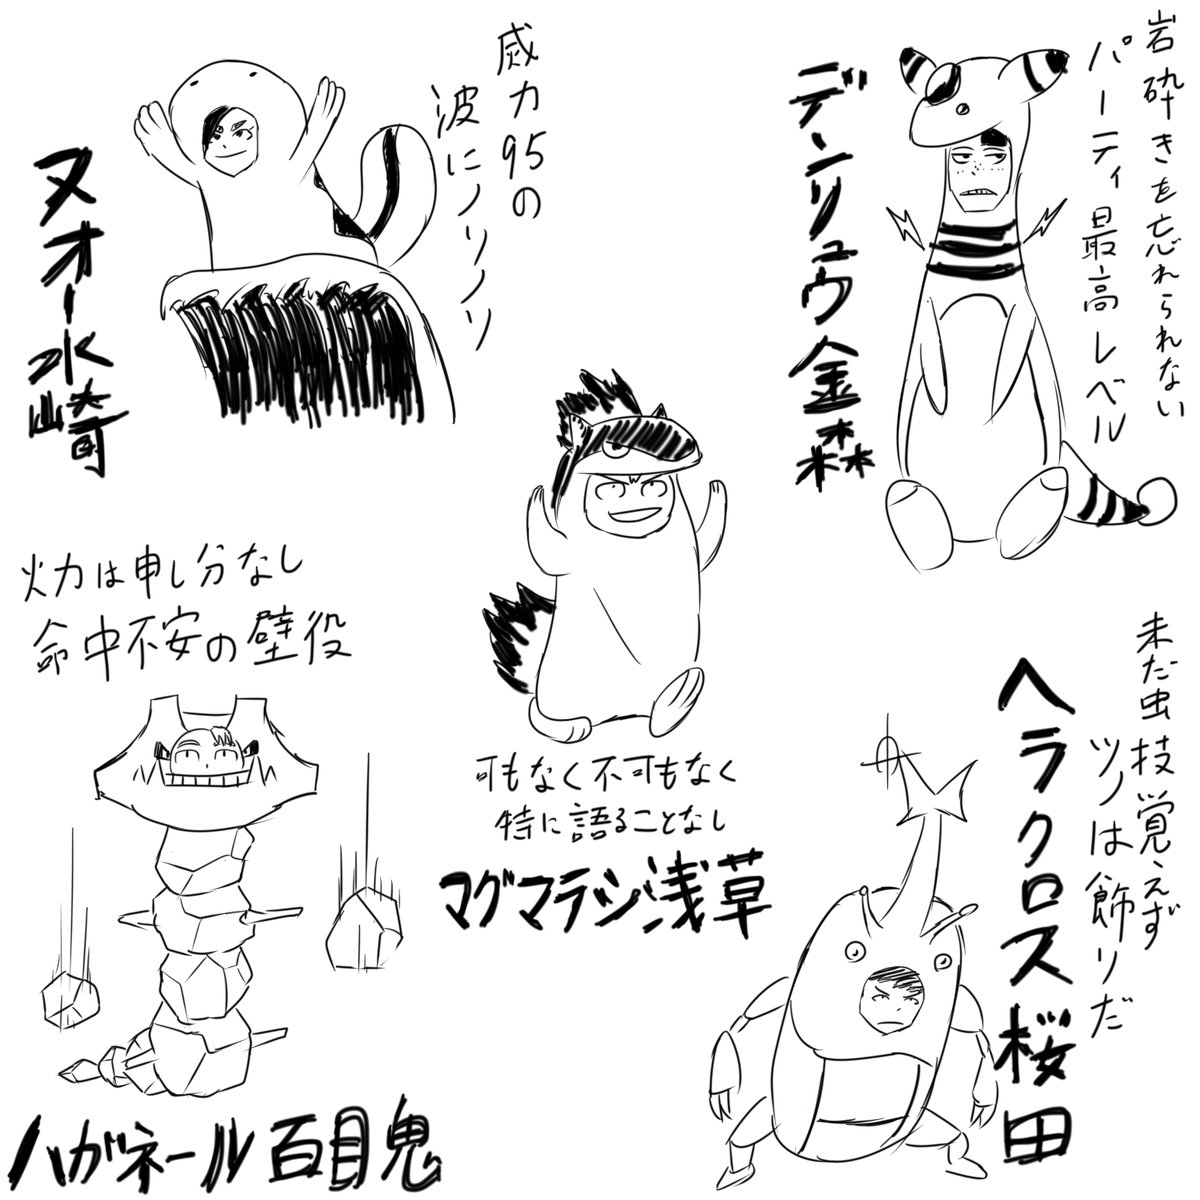 威力95の
波にノリノリ
ヌオー水崎
岩砕きを忘れられない
パーティ最高レベル
デンリュウ金森
火力は申し分なし
命中不安の壁役
ハガネール百目鬼
可もなく不可もなく
特に語ることなし
マグマラシ浅草
未だ虫技覚えず
ツノは飾りだ
ヘラクロス桜田